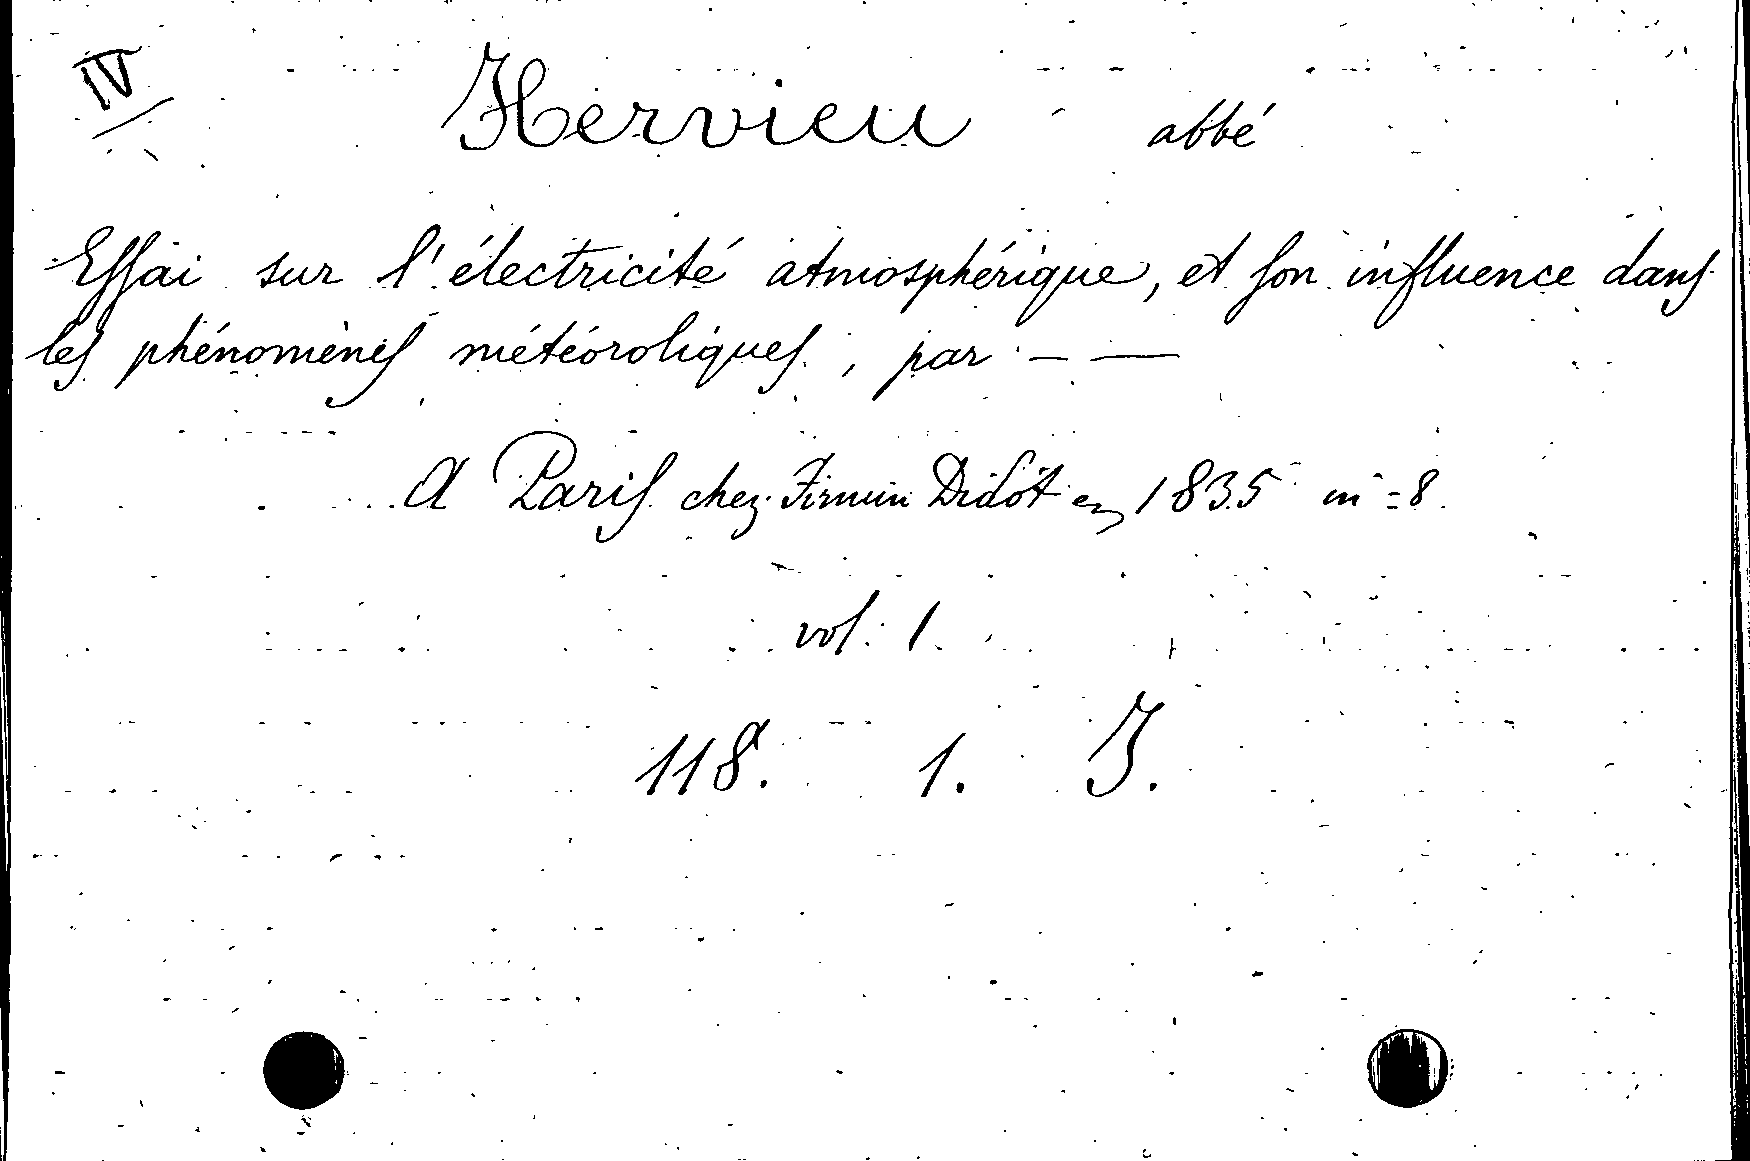 IV
Hervieu abbé
Essai sur l'électricité atmosphérique, et son influence dans
les phénomènes météoroliques, par - —
A Paris chez Firmin Didot en 1835 in=8
vol. 1.
118. 1. J.